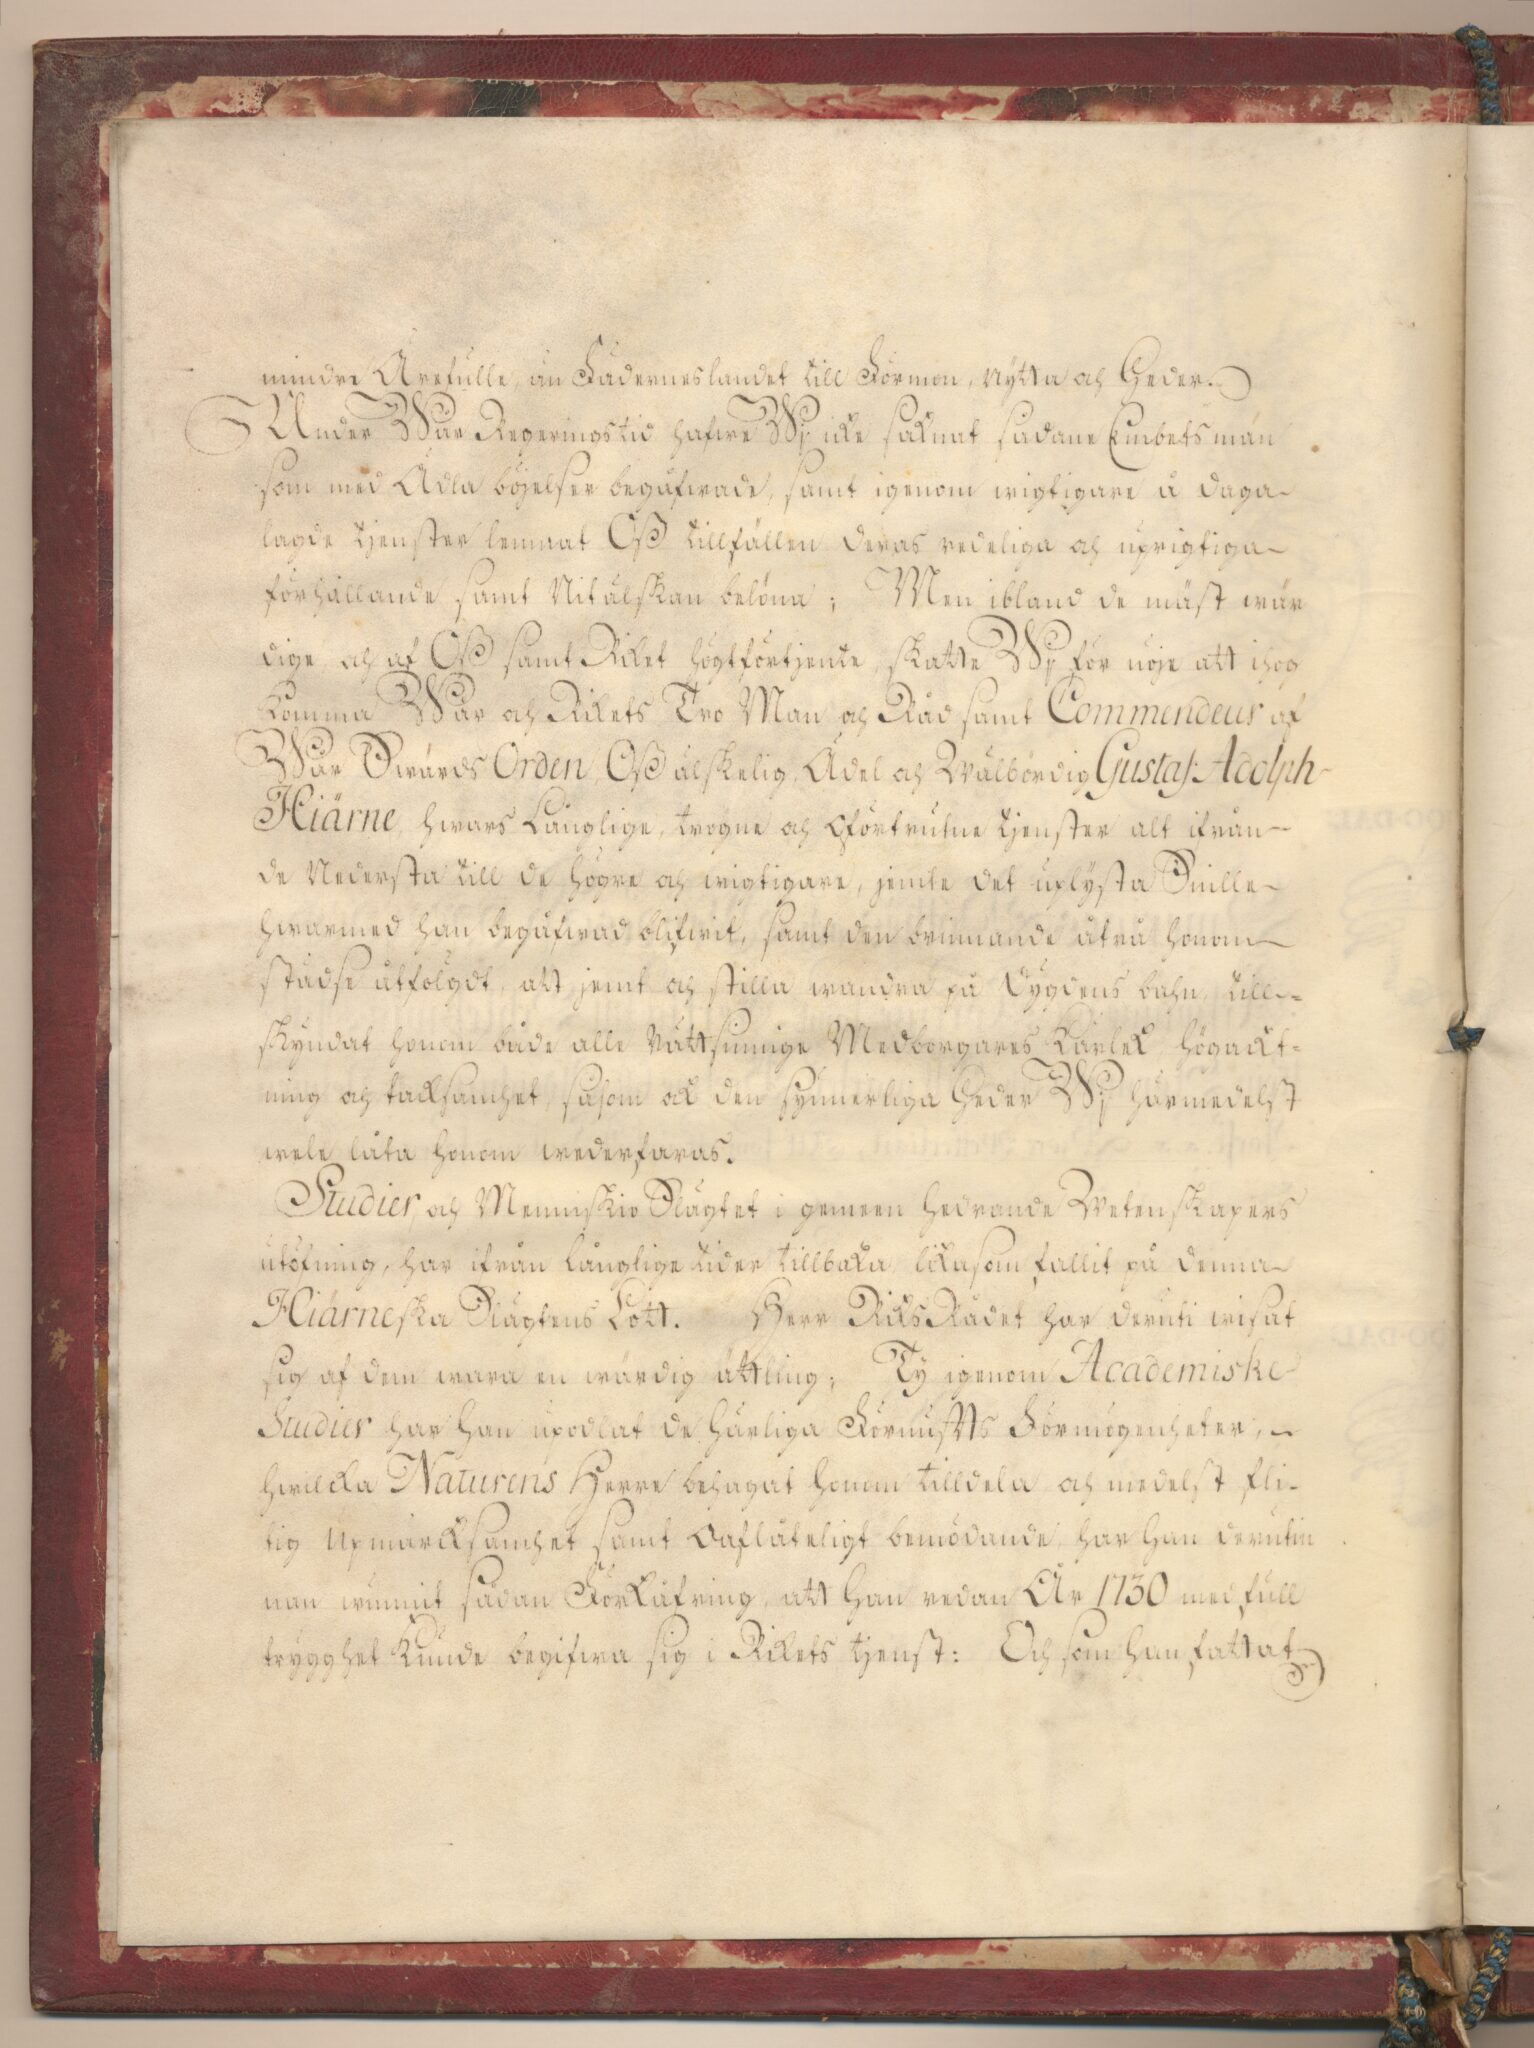 mindre Ärefulle, än Fäderneslandet till Förmon, Nytta och Heder.
Under Wår Regeringstid hafwe Wj icke saknat sådane Embetsmän
som med Ädla böjelser begåfwade, samt igenom wigtigare å daga
lagde tjenster lemnat Oß tillfällen deras redeliga och uprigtiga
förhållande samt Nitälskan belöna; Men ibland de mäst wär
dige, och af Oß samt Riket högtförtjente, skatte Wj för nöje att ihog
komma Wår och Rikets Tro Man och Råd samt Commendeur af
Wår Swärds Orden, Oß älskelig, Ädel och Wälbördig Gustaf Adolph
Hiärne, hwars Långlige, trogne och Oförtrutne tjenster alt ifrån
de Nedersta till de högre och wigtigare, jemte det uplysta Snille
hwarmed han begåfwad blifwit, samt den brinnande åtrå honom
städse åtfölgdt, att jemt och stilla wandra på Dygdens bahn, till-
skyndat honom både alle Rättsinnige Medborgares Kärlek, högackt-
ning och tacksamhet, såsom ock den synnerliga Heder Wj härmedelst
wele låta honom wederfaras.
Studier, och Menniskio Slägtet i gemeen hedrande Wetenskapers
utöfning, har ifrån långlige tider tillbaka, likasom fallit på denna
Hiärneska Slägtens Lott. Herr RiksRådet har deruti wisat
sig af dem wara en wärdig ättling; Ty igenom Academiske
Studier har Han upodlat de härliga Förnufts Förmögenheter,
hwilcka Naturens Herre behagat honom tilldela, och medelst fli-
tig Upmärcksamhet samt Oaflåteligt bemödande, har Han derutin
nan wunnit sådan Förkåfring, att Han redan År 1730 med full
trygghet kunde begifwa sig i Rikets tjenst: Och som Han fattat